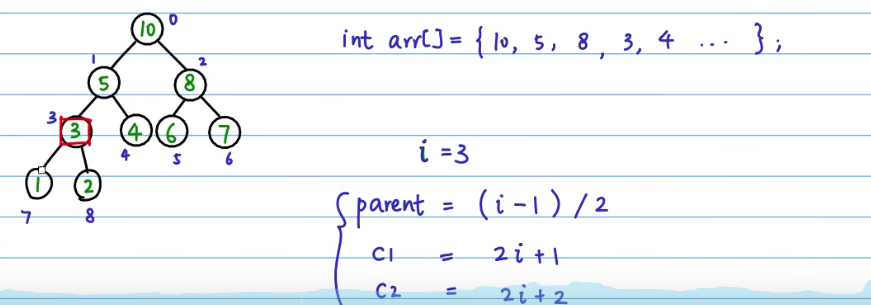 10 0
int arr[] = { 10, 5, 8, 3, 4 ... };
1 2
5 8
3 3 4 6 7
4 5 6
i = 3
1 2
7 8
parent = (i-1) / 2
C1 = 2i+1
C2 = 2i+2